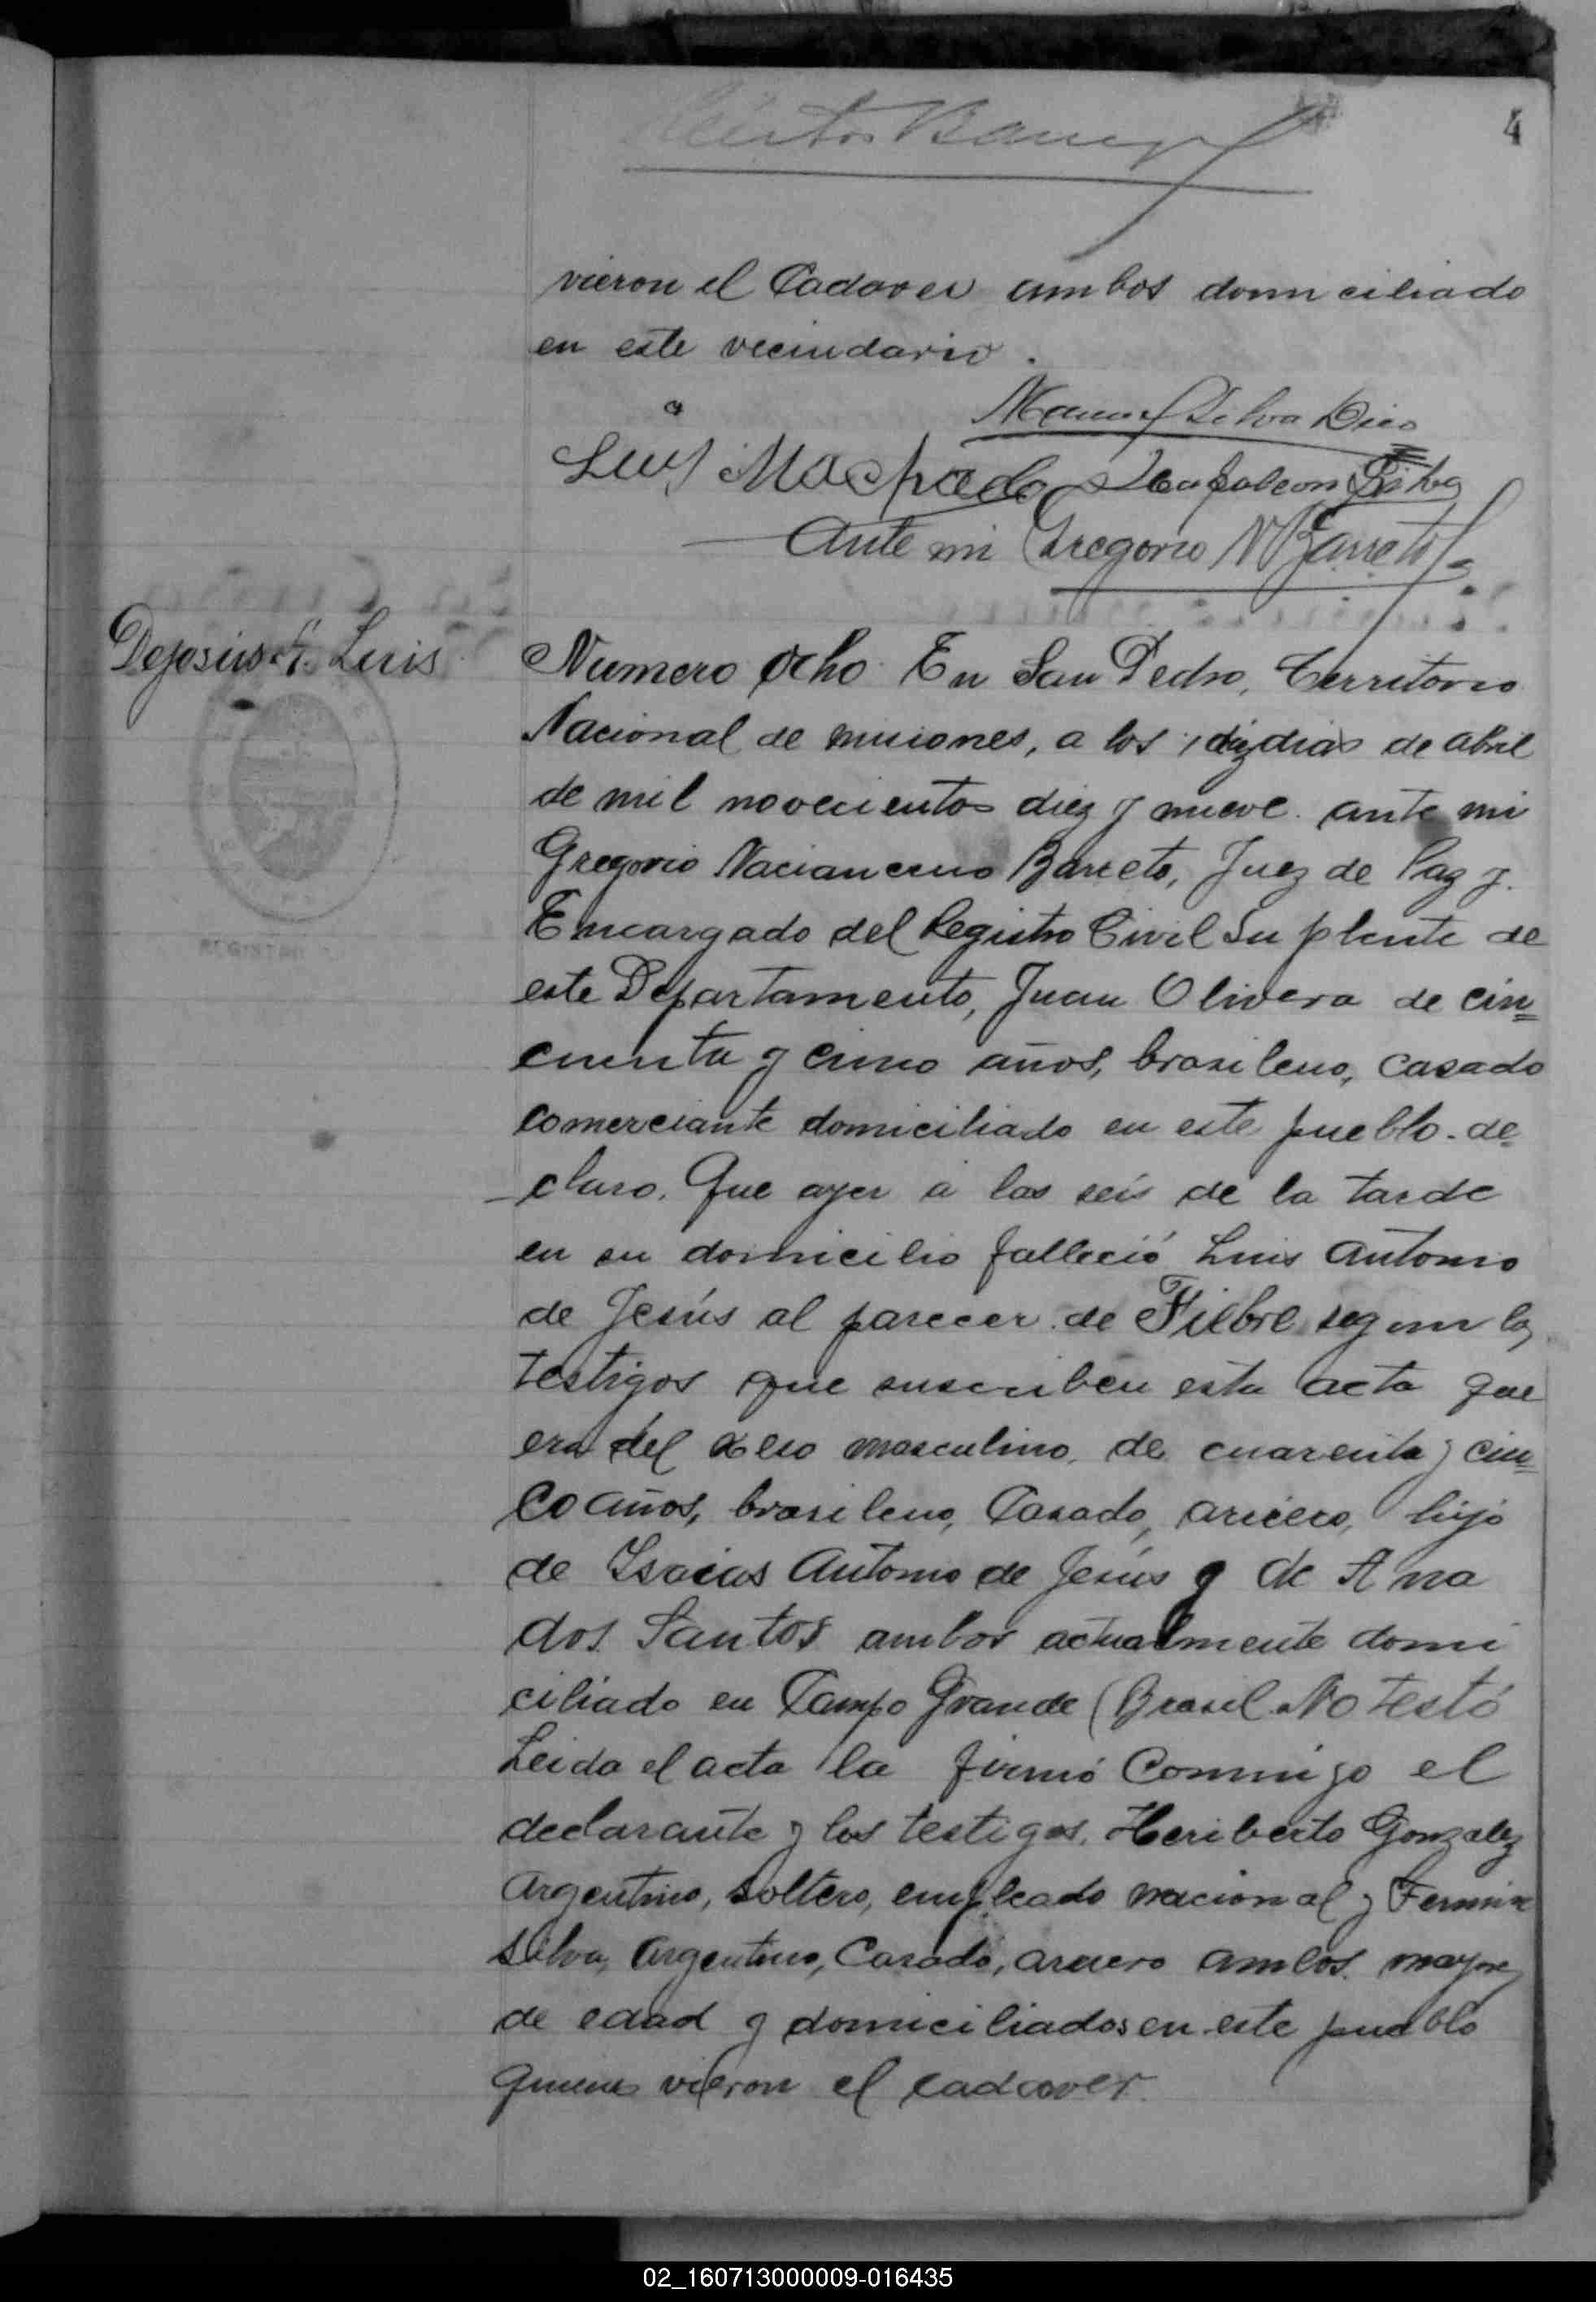 4
vieron el Cadaver ambos domiciliado
en este vecindario.
Luis Machado Napoleon Silva
Ante mi Gregorio N Barreto
Dejesus A. Luis
Numero Ocho En San Pedro, Territorio
Nacional de misiones, a los diez dias de abril
de mil novecientos diez y nueve. ante mi
Gregorio Nacianceno Barreto, Juez de Paz y.
Encargado del Registro Civil Suplente de
este Departamento, Juan Olivera de cin=
cuenta y cinco años, brasileno, casado
comerciante domiciliado en este pueblo. de=
claro. Que ayer á las seis de la tarde
en su domicilio falleció Luis Antonio
de Jesús al parecer de Fiebre segun los
testigos que suscriben esta acta que
era del sexo masculino, de cuarenta y cin=
co años, brasileno, Casado, arriero, hijo
de Isaias Antonio de Jesús y de Ana
dos Santos ambos actualmente domi
ciliado en Campo Grande (Brasil No testó
Leida el acta la firmó Conmigo el
declarante y los testigos, Heriberto Gonzalez
Argentino, soltero, empleado nacional y Fermin
Silva, Argentino, Casado, arriero ambos mayores
de edad y domiciliados en este pueblo
quienes vieron el cadaver.
REGISTRO
02_160713000009-016435